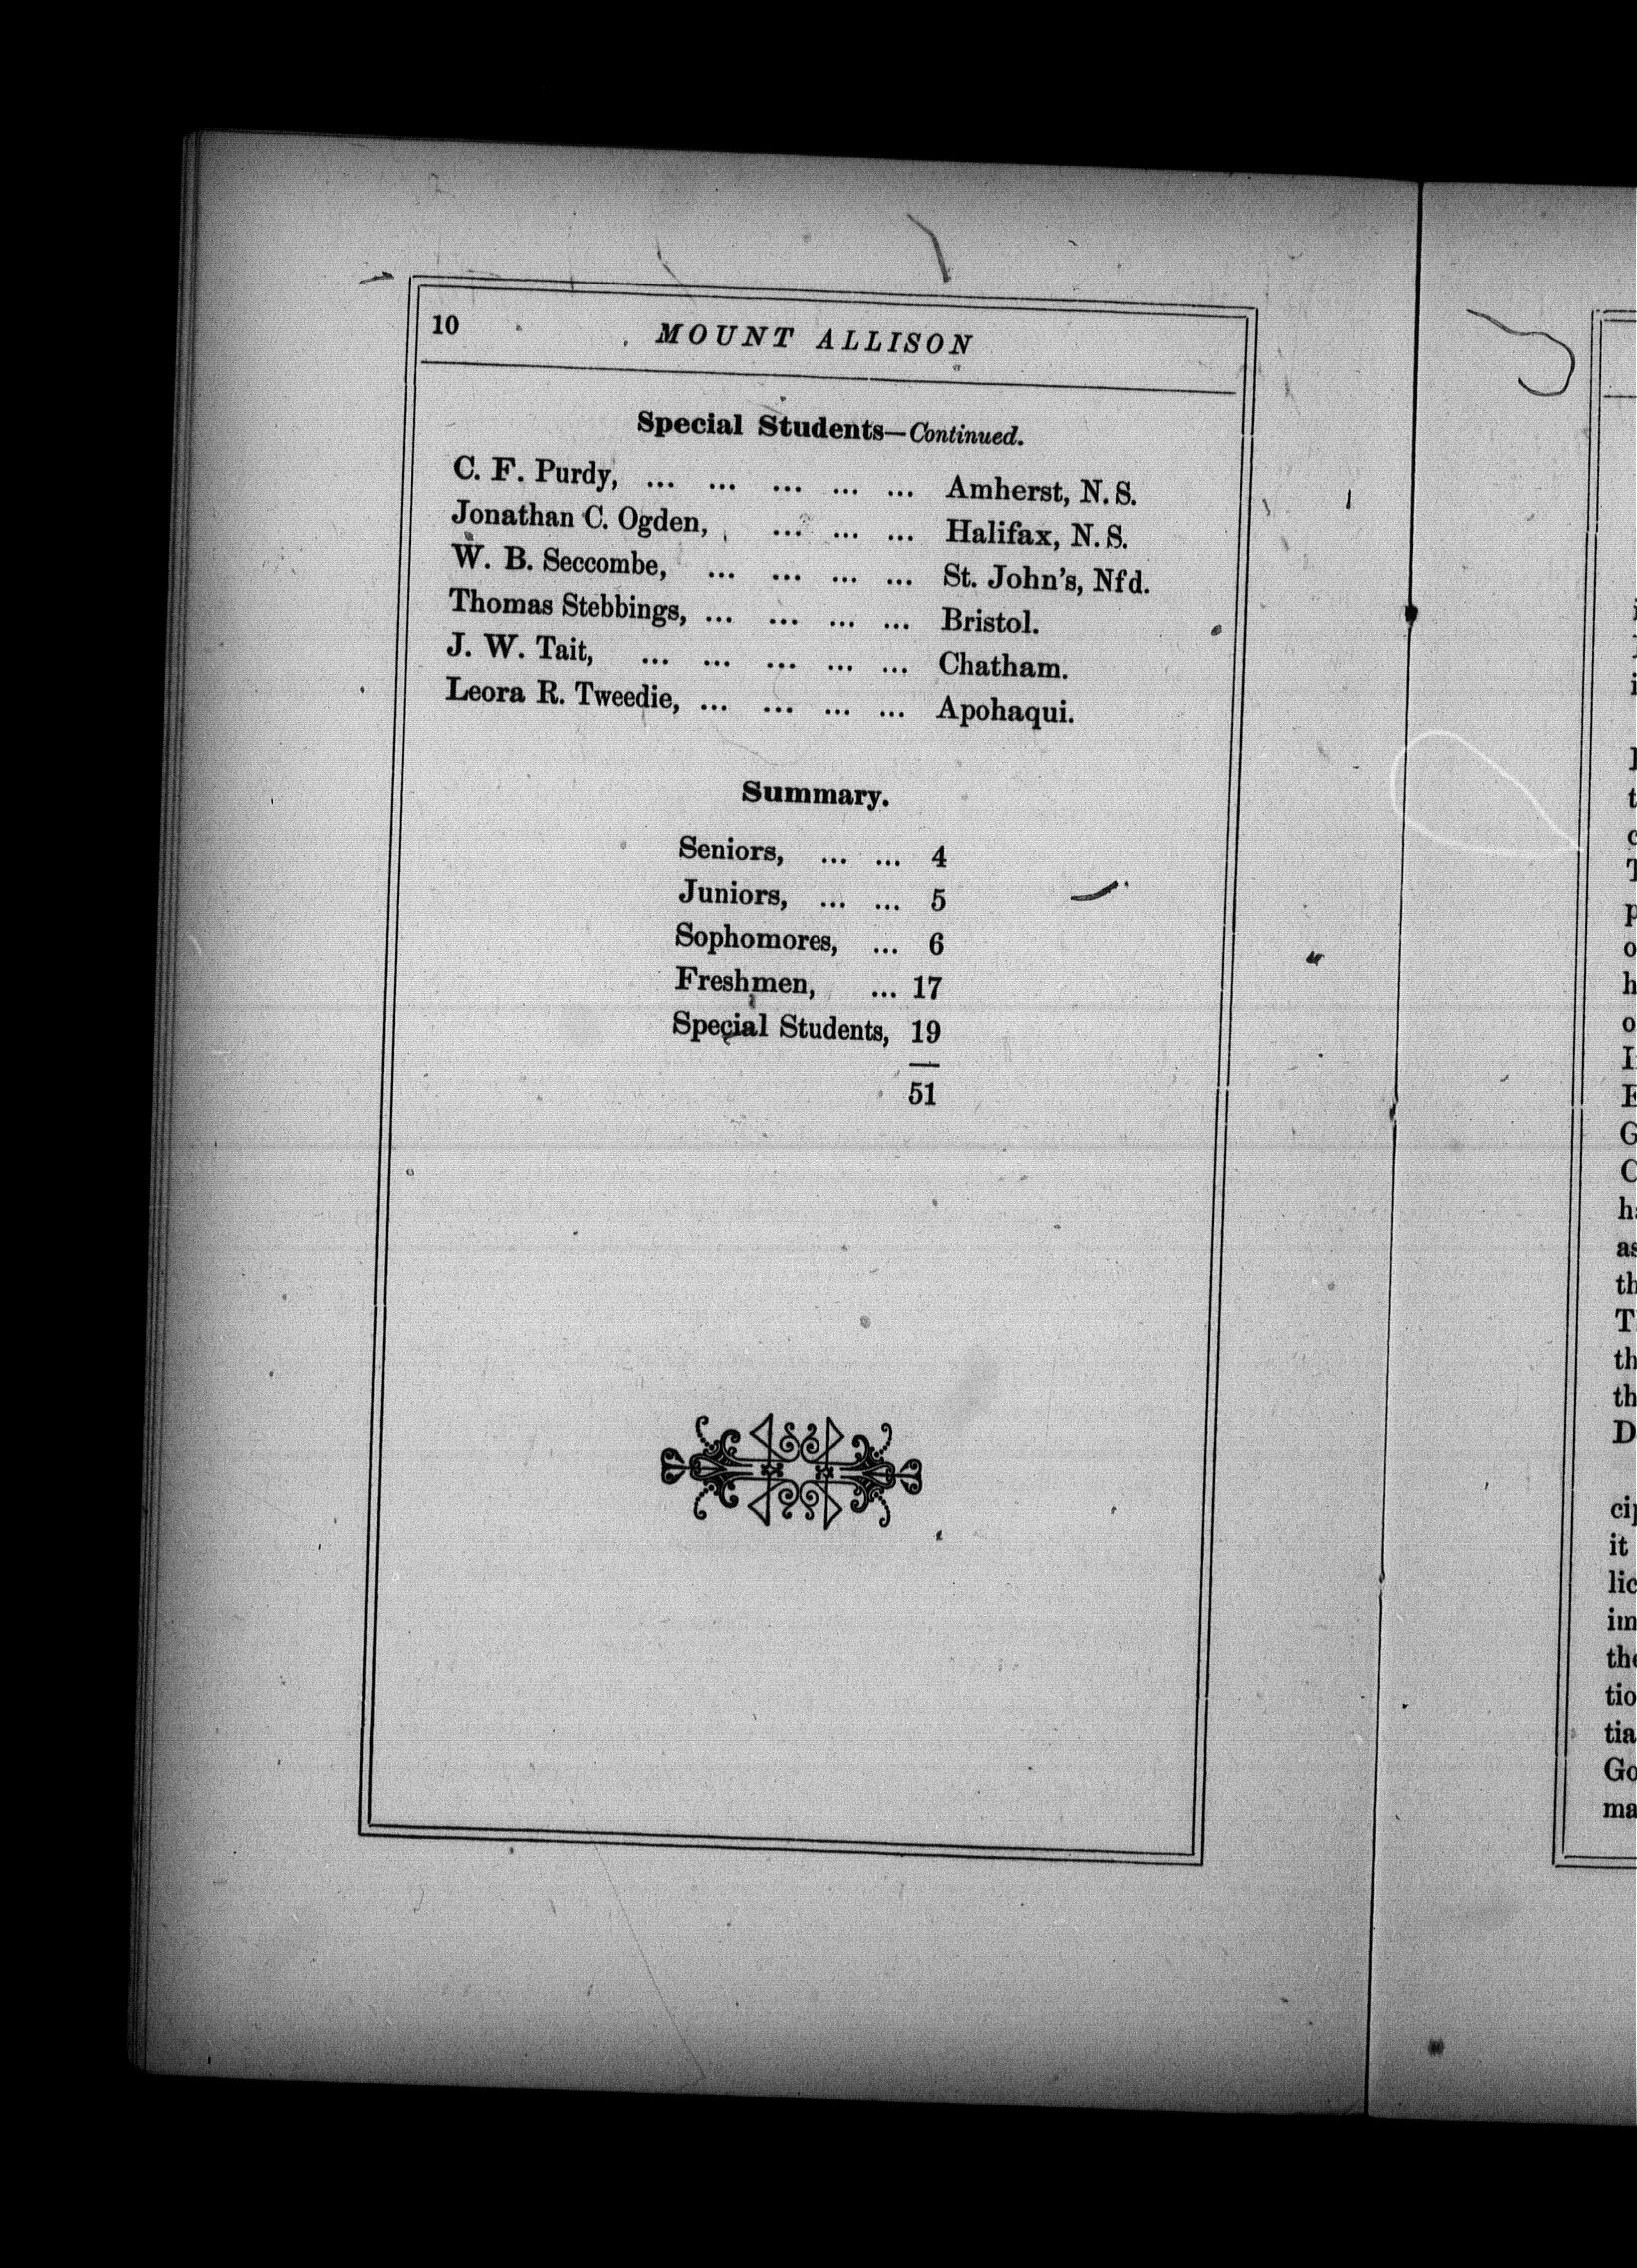 10 MOUNT ALLISON
Special Students—Continued.
C. F. Purdy, ... ... ... ... ... Amherst, N. S.
Jonathan C. Ogden, ... ... ... Halifax, N. S.
W. B. Seccombe, ... ... ... ... St. John's, Nfd.
Thomas Stebbings, ... ... ... ... Bristol.
J. W. Tait, ... ... ... ... ... Chatham.
Leora R. Tweedie, ... ... ... ... Apohaqui.
Summary.
Seniors, ... ... 4
Juniors, ... ... 5
Sophomores, ... 6
Freshmen, ... 17
Special Students, 19
51